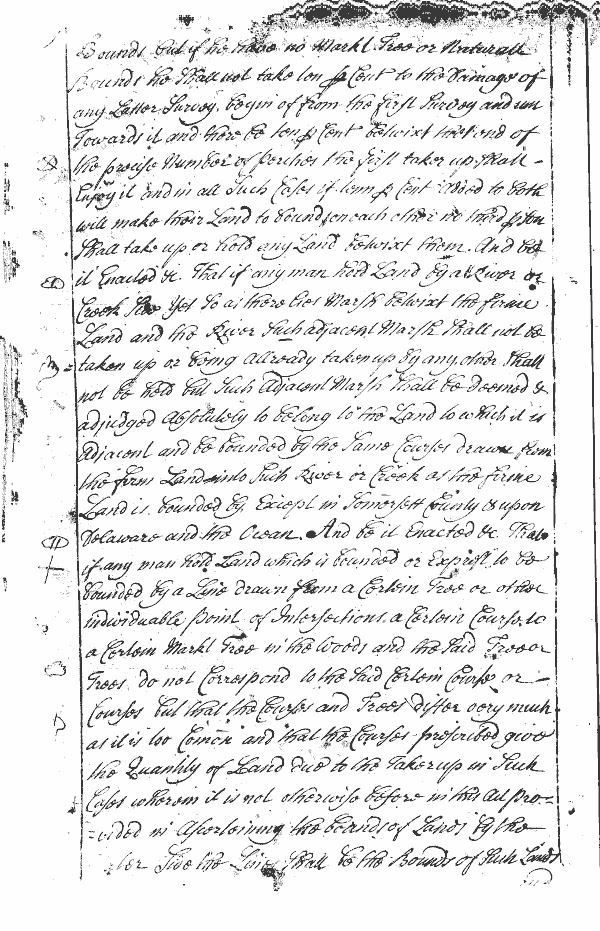 Bounds but if he have no Markt Tree or Naturall
Bounds he Shall not take ten p Cent to the Damage of
any Latter Survey. begin of from the first Survey and run
Towards it and there be ten p Cent betwixt that end of
the precise Number of perches the first taker up Shall -
Enjoy it and in all Such Cases if tenn p Cent added to both
will make their Land to bound on each other no third pson
Shall take up or hold any Land betwixt them. And be
it Enacted &c. That if any man hold Land by a River or
Creek Side Yet So as there lies Marsh betwixt the firme
Land and the River Such adjacent Marsh Shall not be
taken up or being Allready taken up by any other Shall
not be held but Such Adjacent Marsh Shall be deemed &
adjudged Absolutely to belong to the Land to which it is
Adjacent and be bounded by the Same Courses drawn from
the firm Land into Such River or Creek as the firme
Land is bounded by, Except in Sommersett County & upon
Delaware and the Ocean. And be it Enacted &c. That
if any man hold Land which is bounded or Exprest to be
bounded by a Line drawn from a Certein Tree or other
individuable point of Intersections a Certein Course to
a Certein Markt Tree in the Woods and the Said Tree or
Trees do not Correspond to the Said Certein Course or -
Courses but that the Courses and Trees differ very much
as it is too Comon and that the Courses prescribed give
the Quantity of Land due to the Taker up in Such
Cases wherein it is not otherwise before in this Act pro-
-vided in Ascertening the bounds of Lands by the
the Lines Shall be the Bounds of Such Lands
and